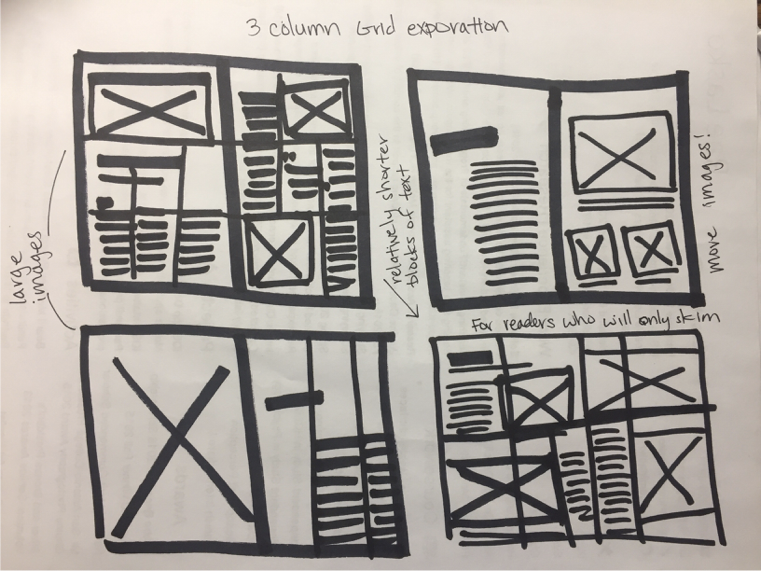 3 column Grid exporation
large
images
relatively shorter
blocks of text
more images!
For readers who will only skim